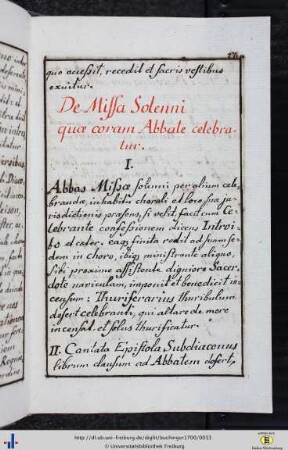 quo accessit, recedit et sacris vestibus
exuitur.
De Missa Solenni
quæ coram Abbate celebra-
tur.
I.
Abbas Missæ solenni per alium cele-
brandæ, in habitu chorali et loco suæ ju-
risdictionis præsens, si velit, facit cum Ce-
lebrante confessionem dicens Introi-
bo et cæter. eaq; finita redit ad suam se-
dem in choro, ibiq; ministrante aliquo,
sibi proximo assistente digniore Sacer-
dote naviculam, imponit et benedicit in-
censum: Thuriferarius thuribulum
defert celebranti, qui altare de more
incensat. et solus thurificatur.
II. Cantata Epistola Subdiaconus
librum clausum ad Abbatem defert,
http://dl.ub.uni-freiburg.de/diglit/buchinger1700/0033
© Universitätsbibliothek Freiburg